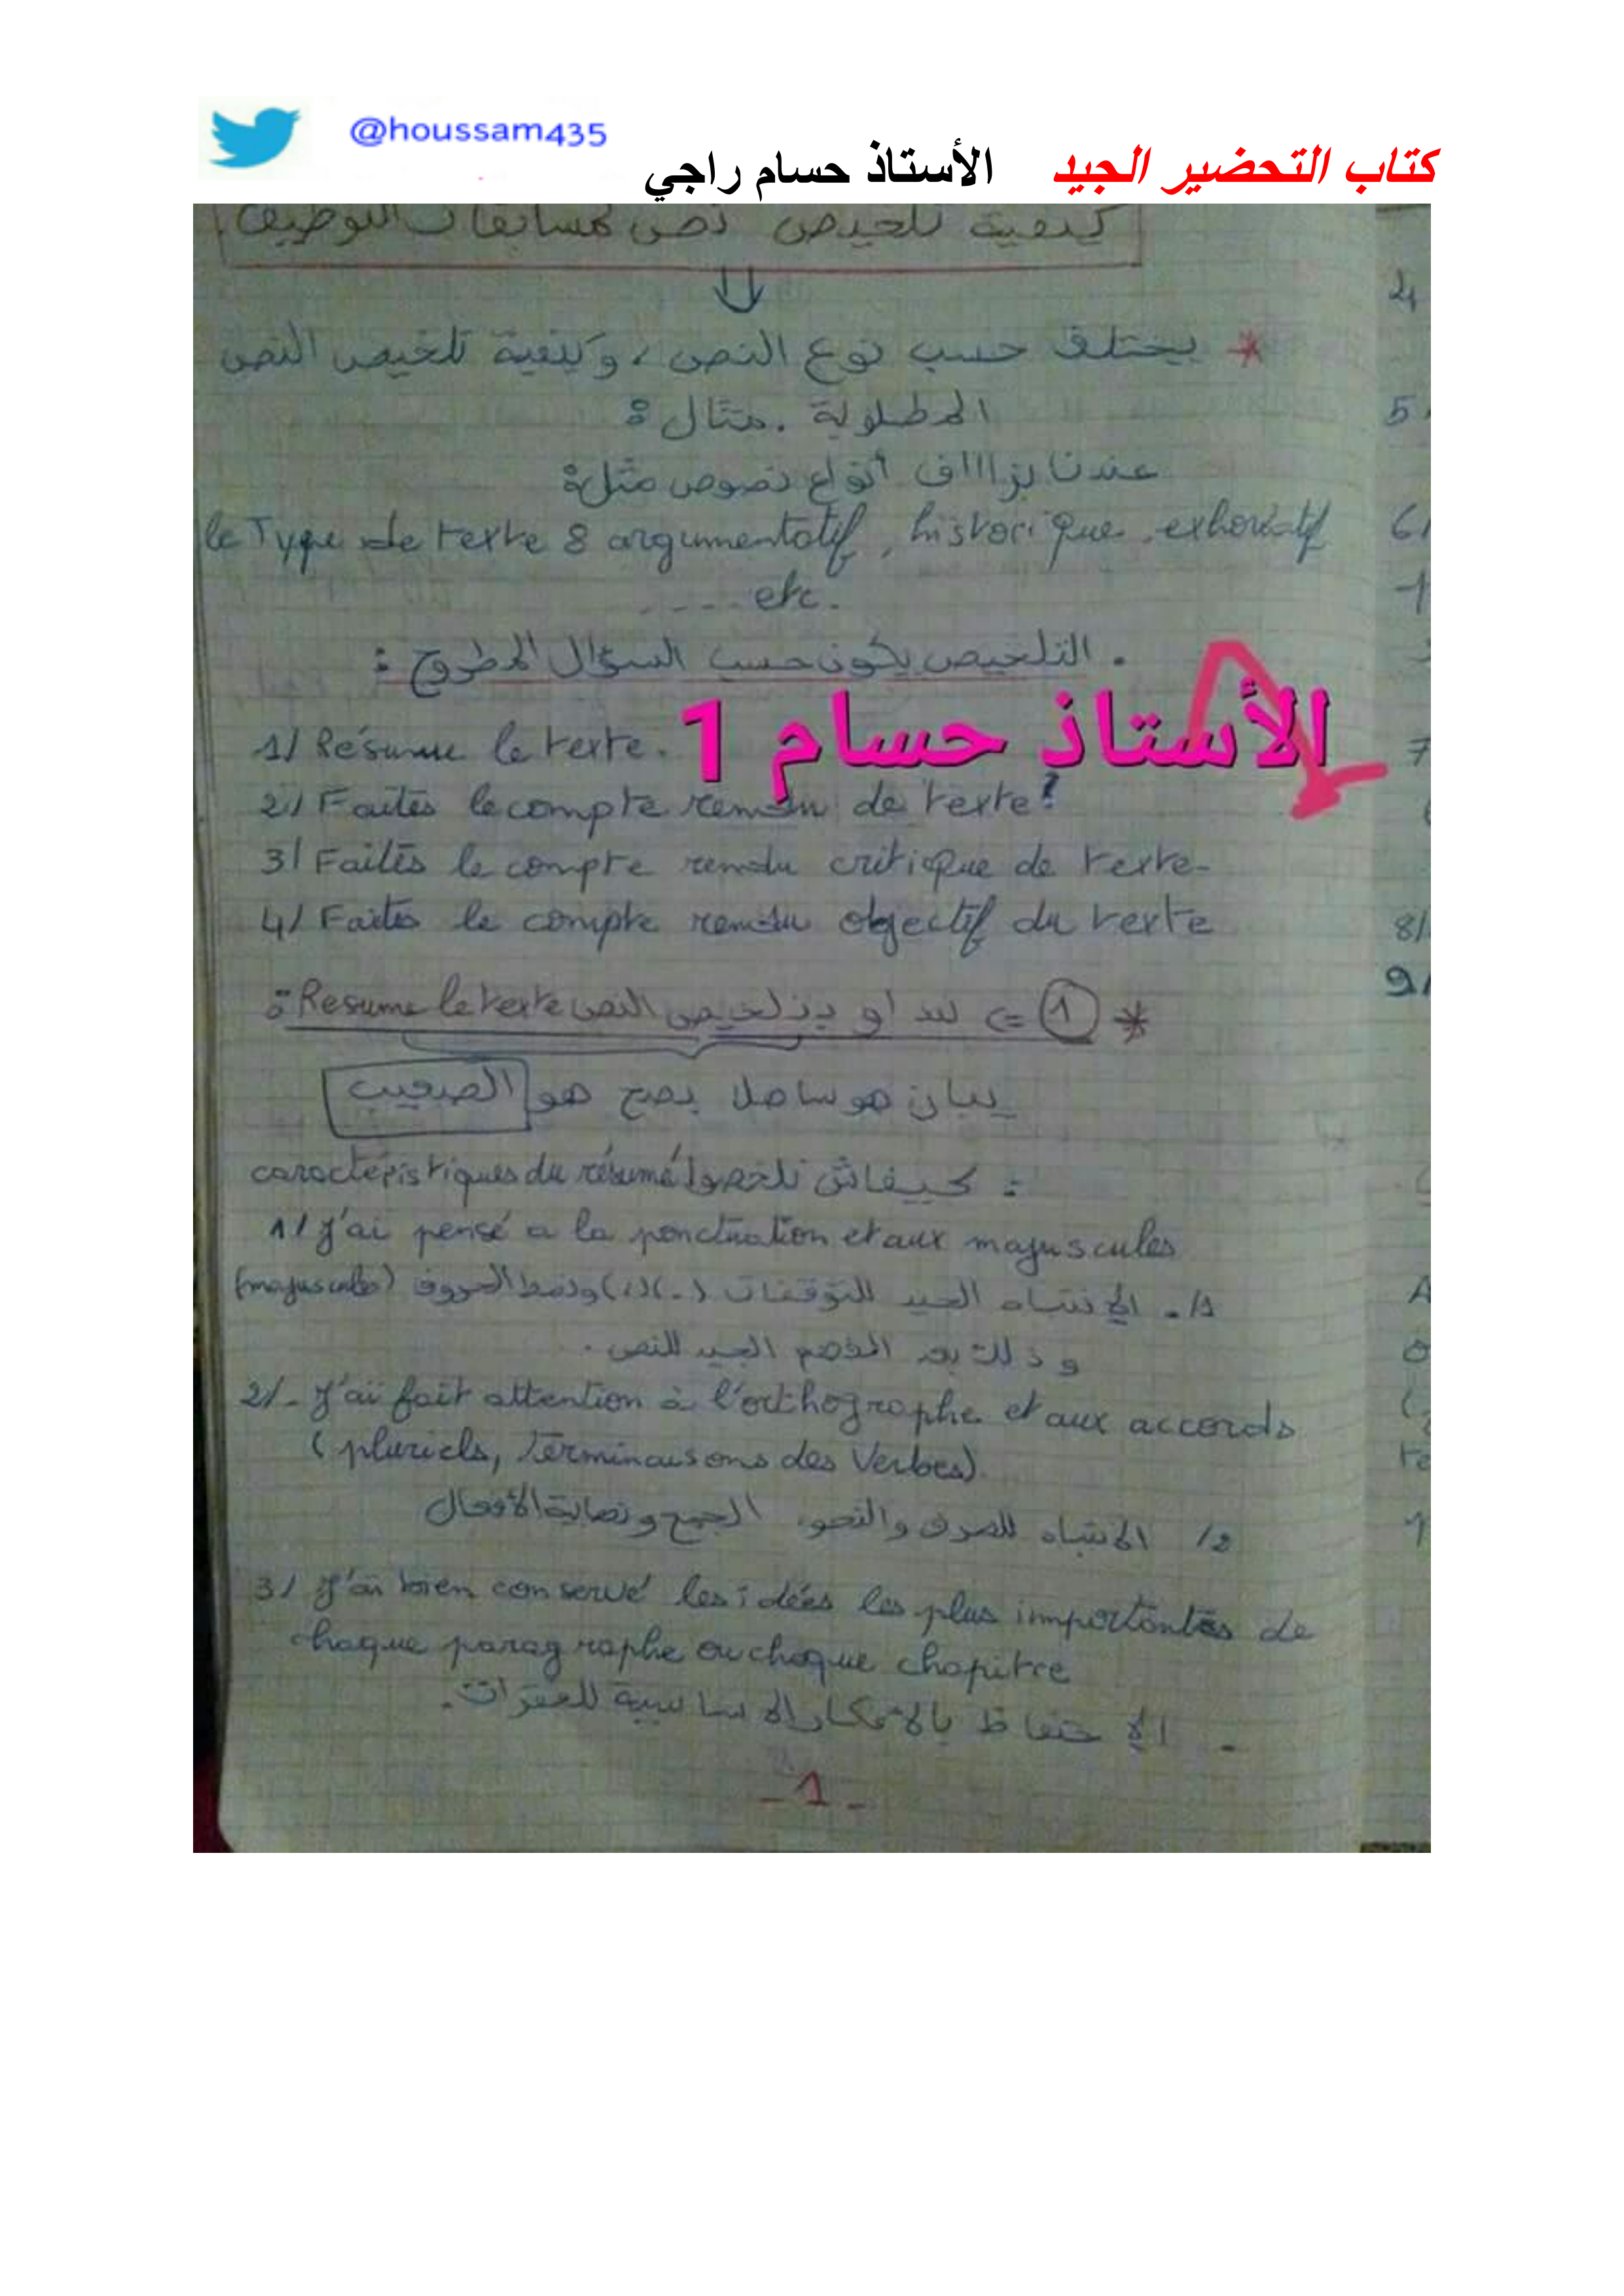 @houssam435
كتاب التحضير الجيد الأستاذ حسام راجي
كيفية تلخيص نص لمسابقات التوظيف
* يختلف حسب نوع النص، وكيفية تلخيص النص
المطلوبة. مثال:
عندنا بزاااف أنواع نصوص مثل:
le Type de texte : argumentatif, historique, exhortatif
.... etc.
. التلخيص يكون حسب السؤال المطروح:
الأستاذ حسام 1
1/ Résume le texte.
2/ Faites le compte rendu de texte?
3/ Faites le compte rendu critique de texte-
4/ Faites le compte rendu objectif du texte
* 1 => تلخيص النص Resume le texte:
يبان هو ساهل بصح هو الصعيب
caractéristiques du résumé كيفاش نلخصو :
1/ J'ai pensé a la ponctuation et aux majuscules
1/. الإنتباه الجيد للتوقفات (.)(،) ونمط الحروف (majuscules)
وذلك بعد الفهم الجيد للنص.
2/- J'ai fait attention à l'orthographe et aux accords
(pluriels, terminaisons des Verbes).
2/ الإنتباه للصرف والنحو، الجمع ونهاية الأفعال
3/ J'ai bien conservé les idées les plus importantes de
chaque paragraphe ou chaque chapitre
- الإحتفاظ بالأفكار الاساسية للفقرات.
-1-